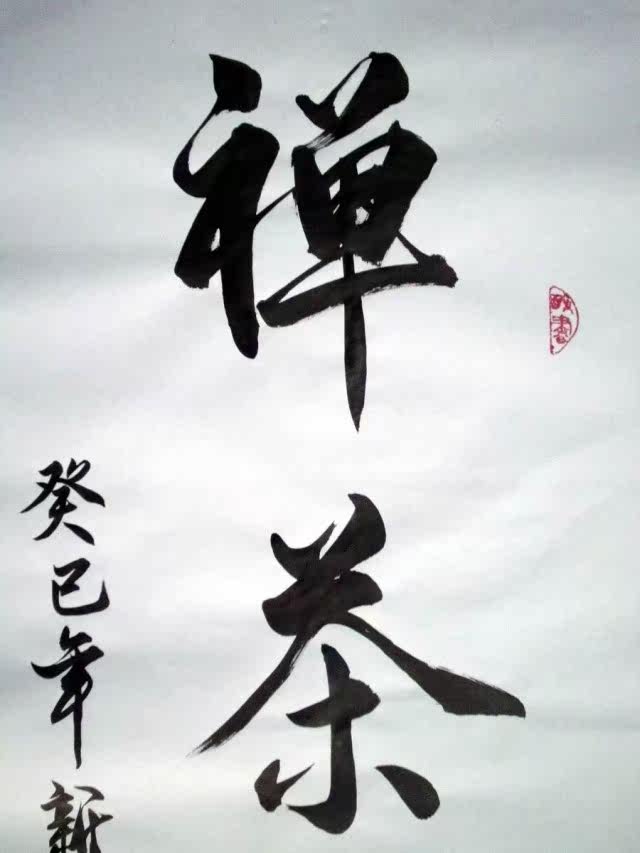 禅茶
癸巳年新